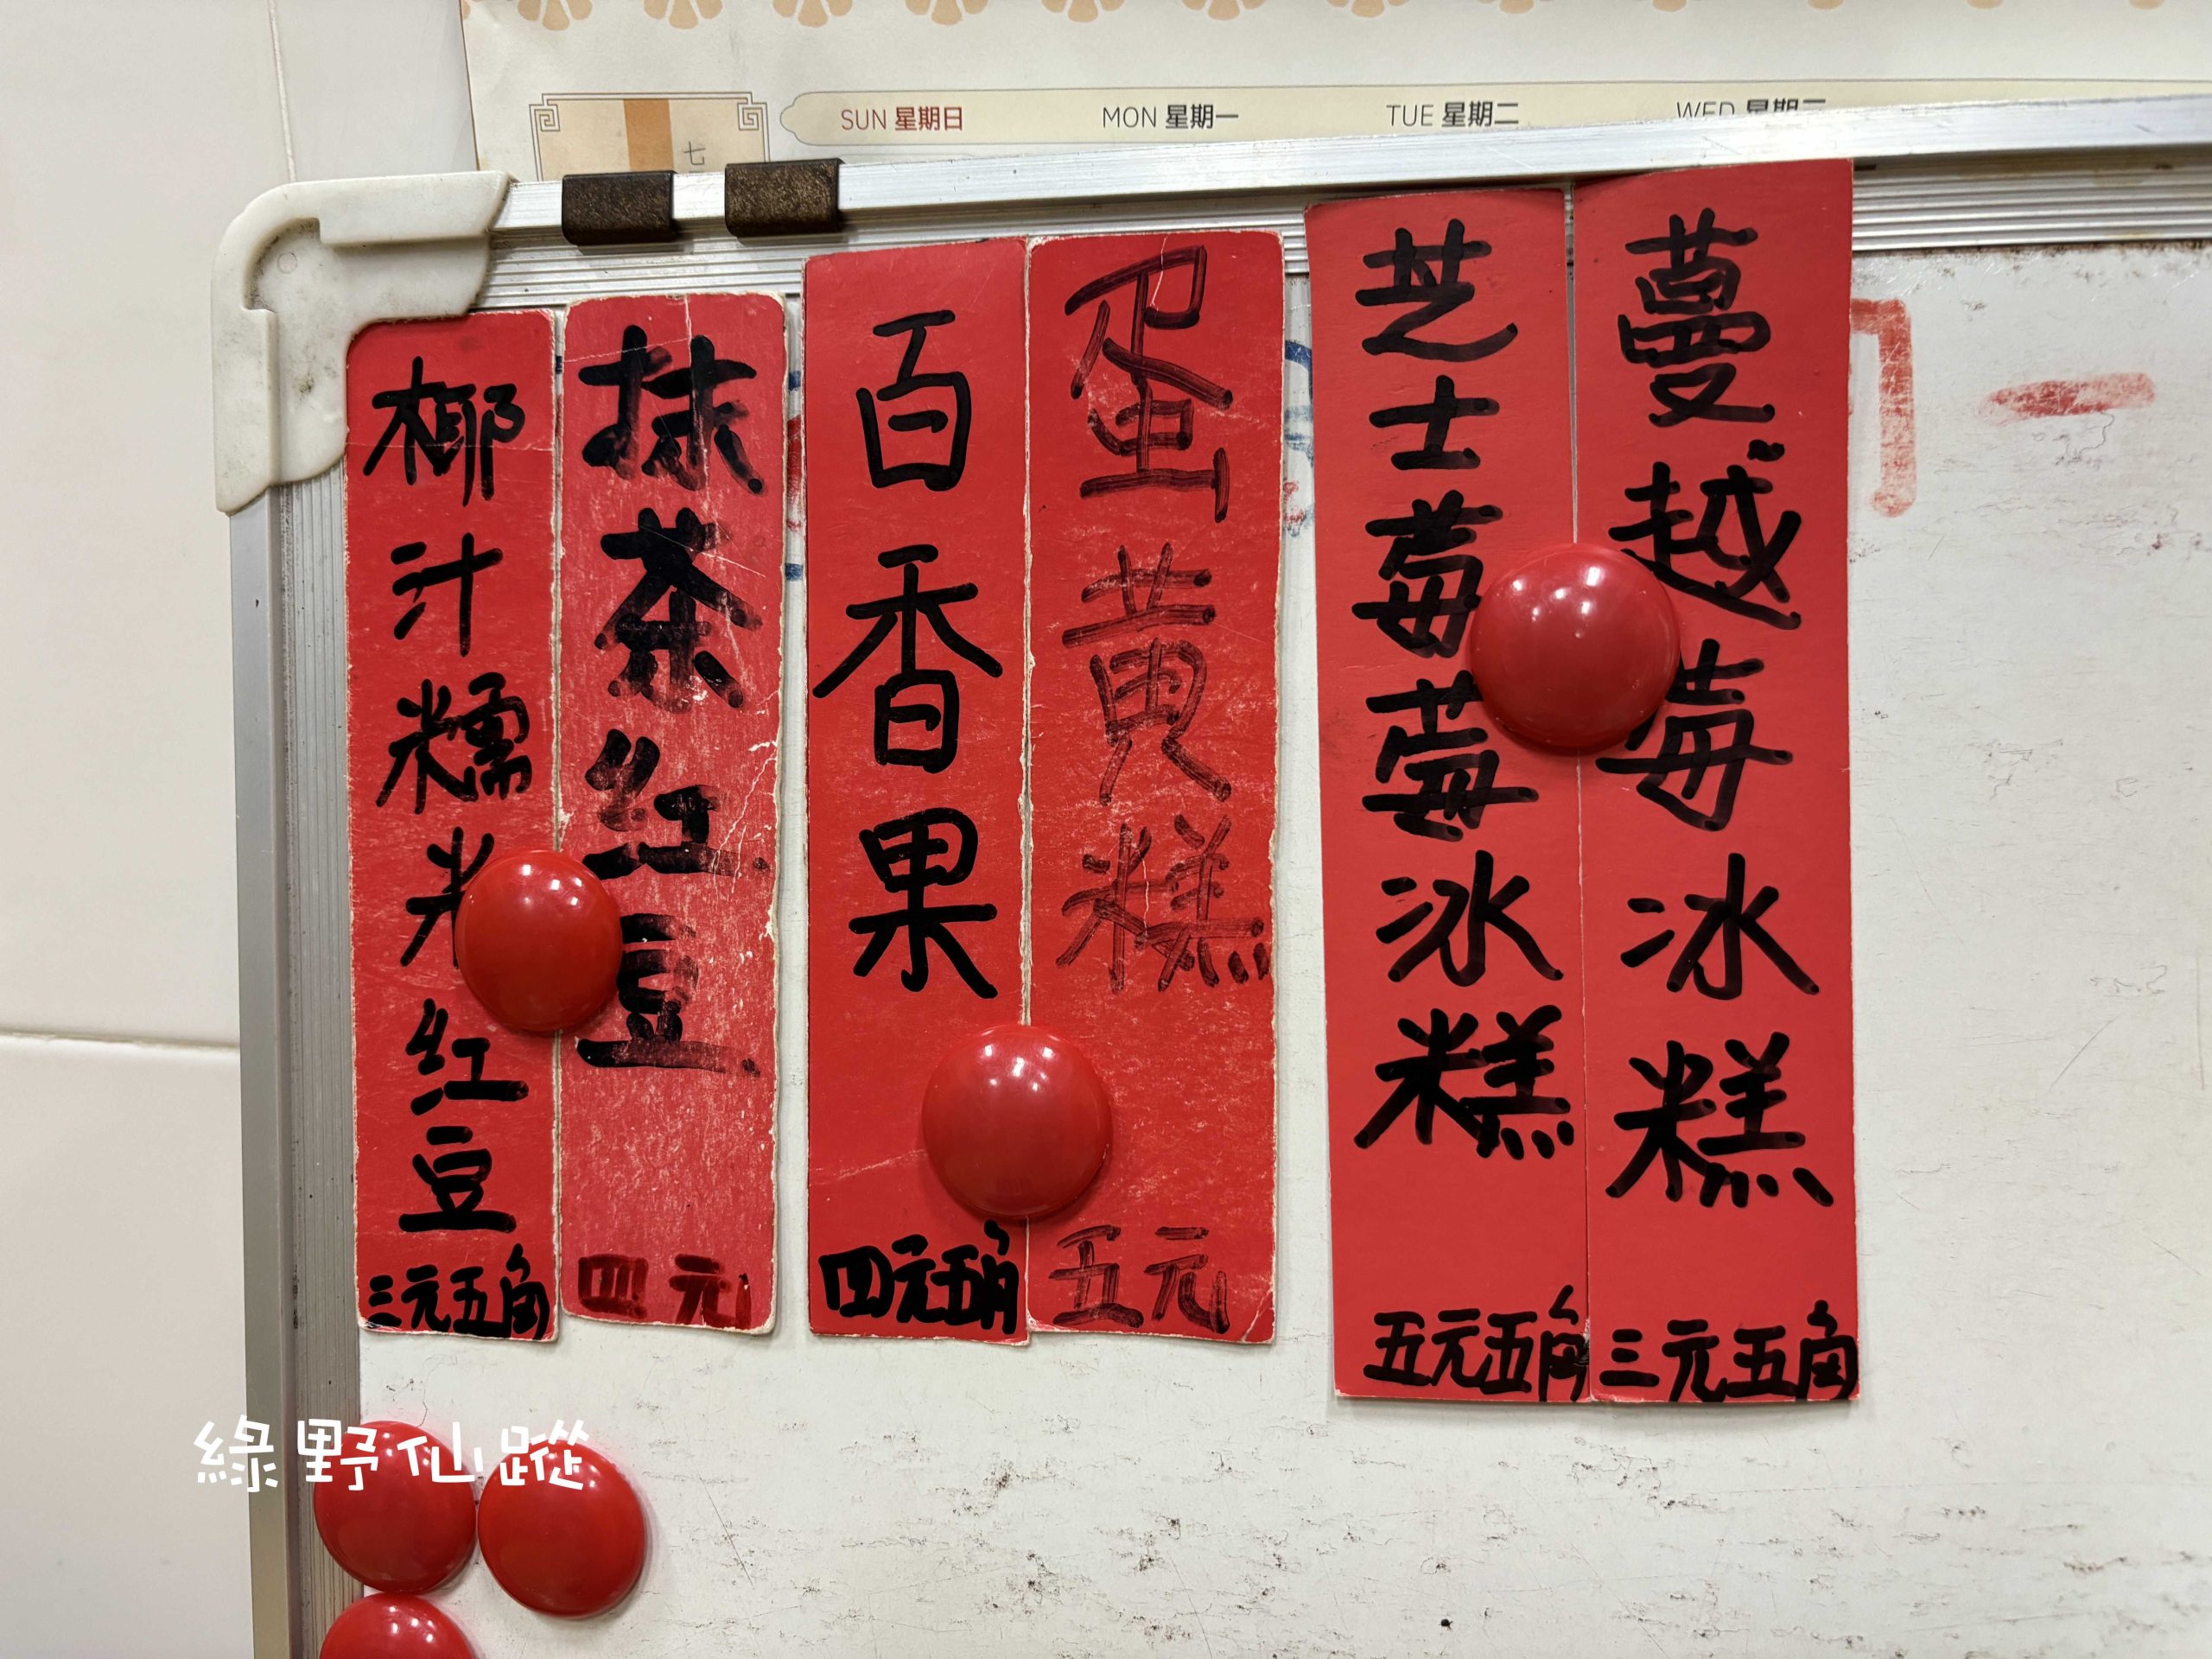 SUN 星期日 MON 星期一 TUE 星期二 WED 星期三
七
椰汁糯米红豆
三元五角
抹茶红豆
四元
百香果
四元五角
蛋黄糕
五元
芝士莓莓冰糕
五元五角
蔓越莓冰糕
三元五角
綠野仙蹤